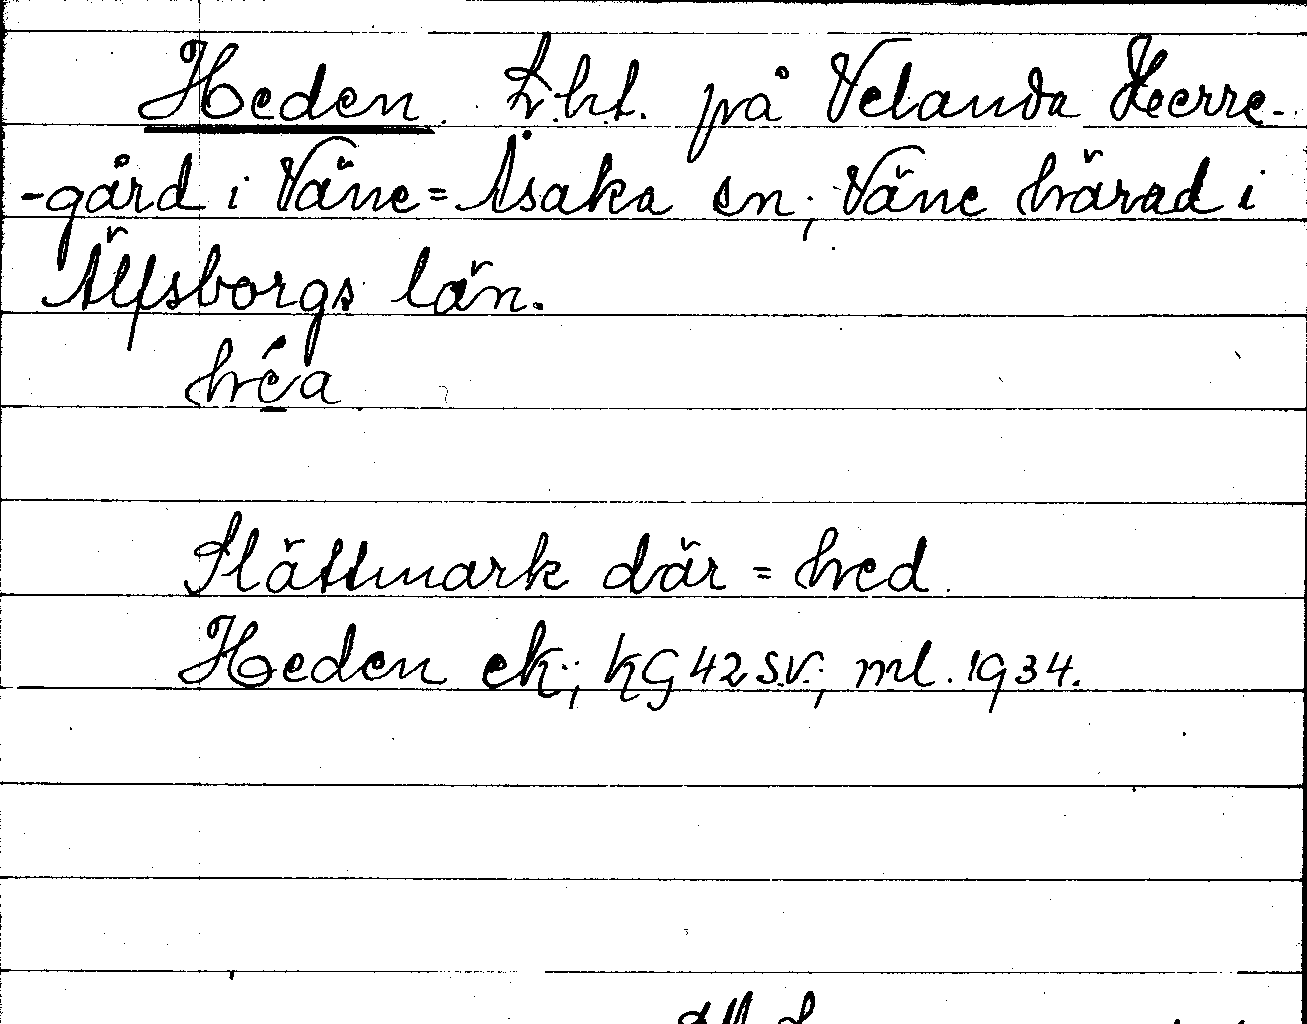 Heden. Lht. på Velanda Herre-
-gård i Väne=Åsaka sn; Väne härad i
Älfsborgs län.
héa
Slättmark där = hed.
Heden ek; KG 42 S.V.; ml. 1934.